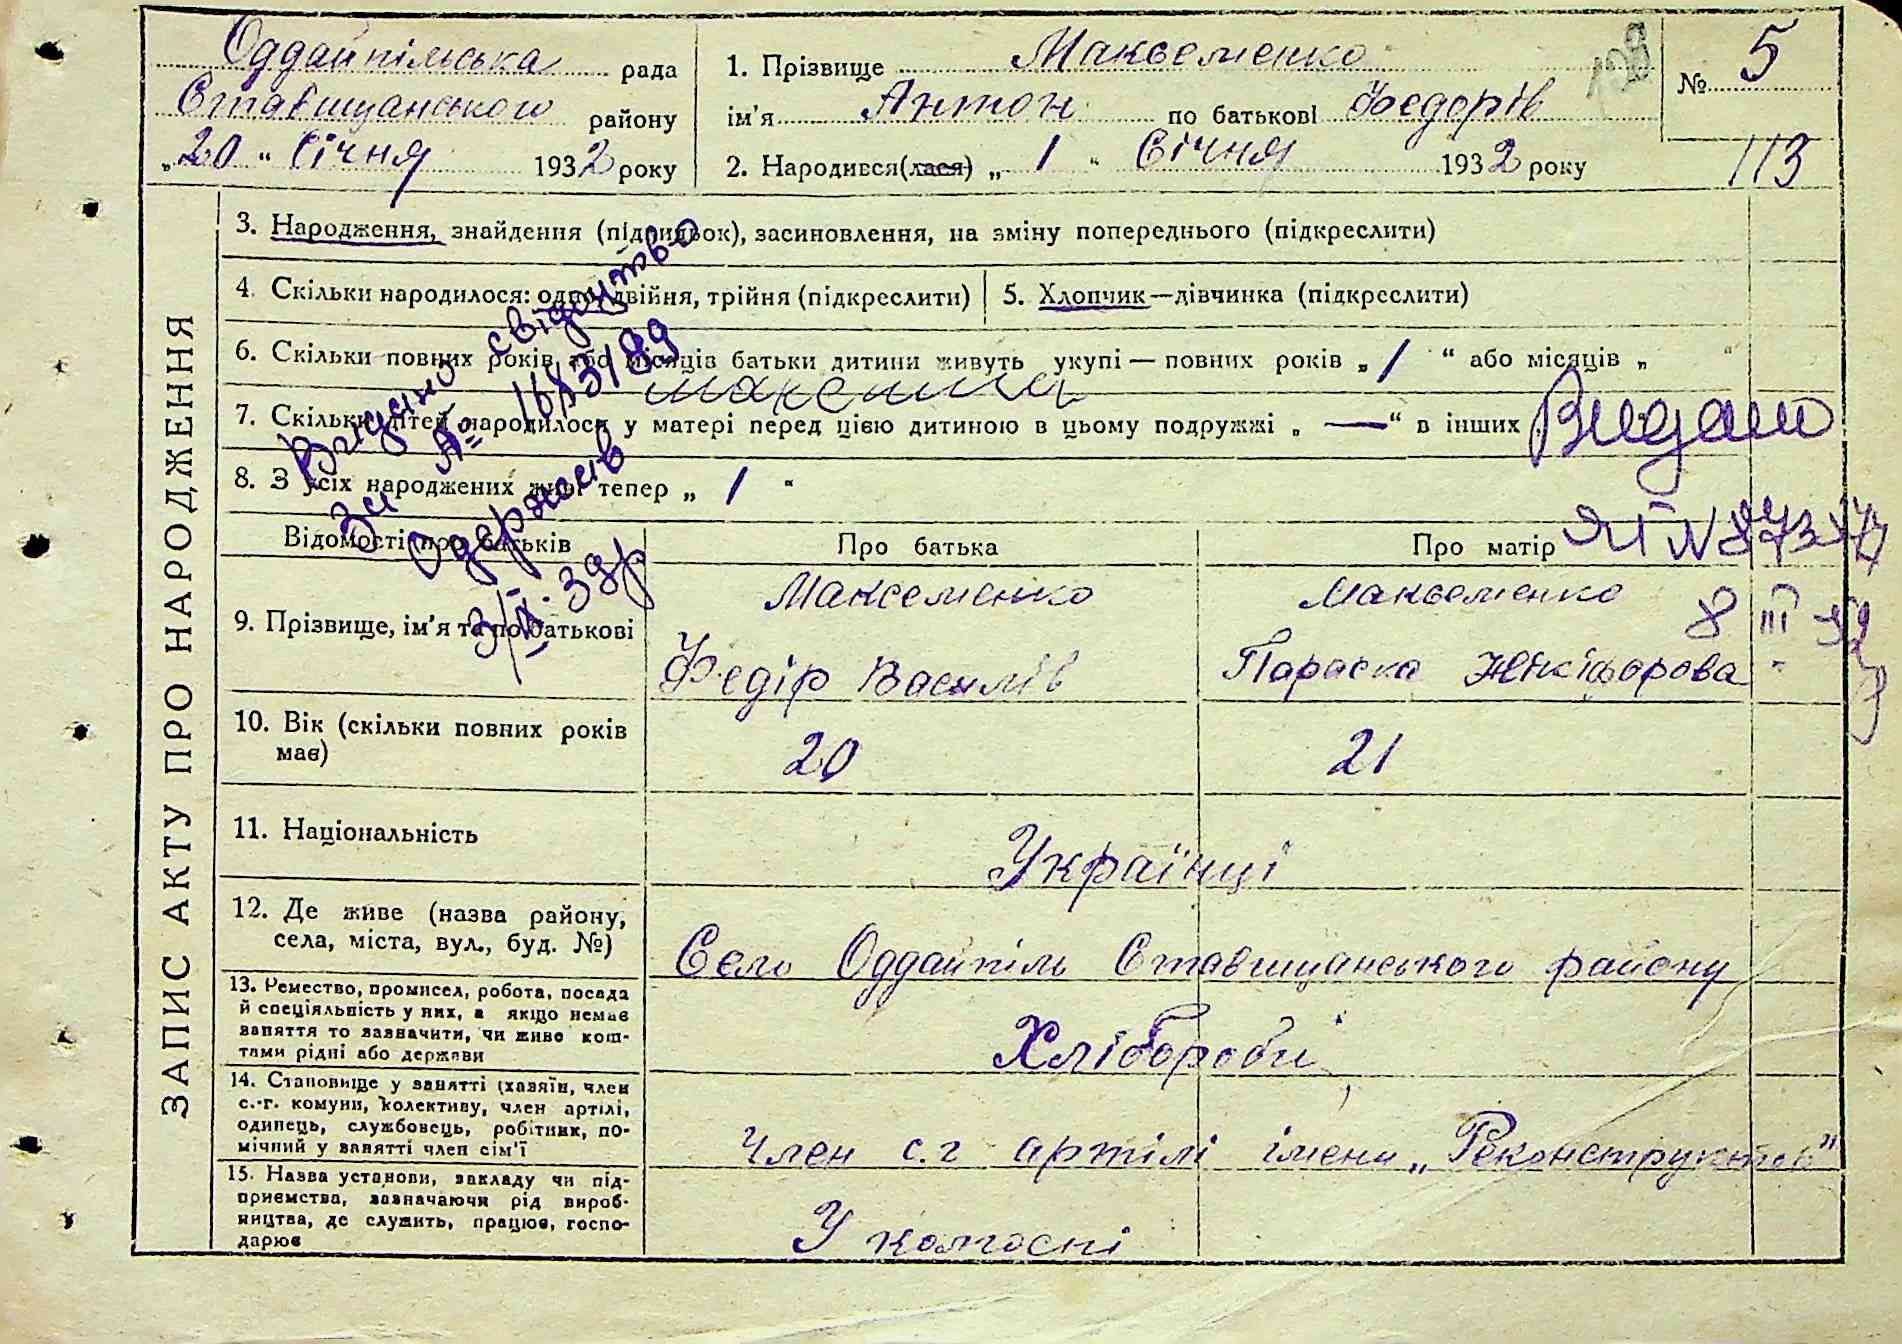 Оддайпільська рада
Ставищанського району
„20“ Січня 1932 року
1. Прізвище Максеменко
ім'я Антон по батькові Федорів
2. Народився(лася) „1“ Січня 1932 року
№ 5
113
ЗАПИС АКТУ ПРО НАРОДЖЕННЯ
3. Народження, знайдення (підкидьок), засиновлення, на зміну попереднього (підкреслити)
4. Скільки народилося: одно, двійня, трійня (підкреслити)
5. Хлопчик—дівчинка (підкреслити)
6. Скільки повних років або місяців батьки дитини живуть укупі — повних років „1“ або місяців „ “
7. Скільки дітей народилося у матері перед цією дитиною в цьому подружжі „—“ в інших
8. З усіх народжених живі тепер „1“
Видано свідоцтво
За №
Одержав
Видано
ЯГ N
8 III
Відомості про батьків
Про батька
Про матір
9. Прізвище, ім'я та по батькові
Максеменко
Федір Василів
Максеменко
Параска Нікіфорова
10. Вік (скільки повних років
має)
20
21
11. Національність
Українці
12. Де живе (назва району,
села, міста, вул., буд. №)
Село Оддайпіль Ставищанського району
13. Ремество, промисел, робота, посада
й спеціяльність у них, а якщо немає
заняття то зазначити, чи живе кош-
тами рідні або держави
Хлібороби
14. Становище у занятті (хазяїн, член
с.-г. комуни, колективу, член артілі,
одинець, службовець, робітник, по-
мічний у занятті член сім'ї
Член с.г артілі імени „Реконструктов"
15. Назва установи, закладу чи під-
приємства, зазначаючи рід вироб-
ництва, де служить, працює, госпо-
дарює
У колгоспі